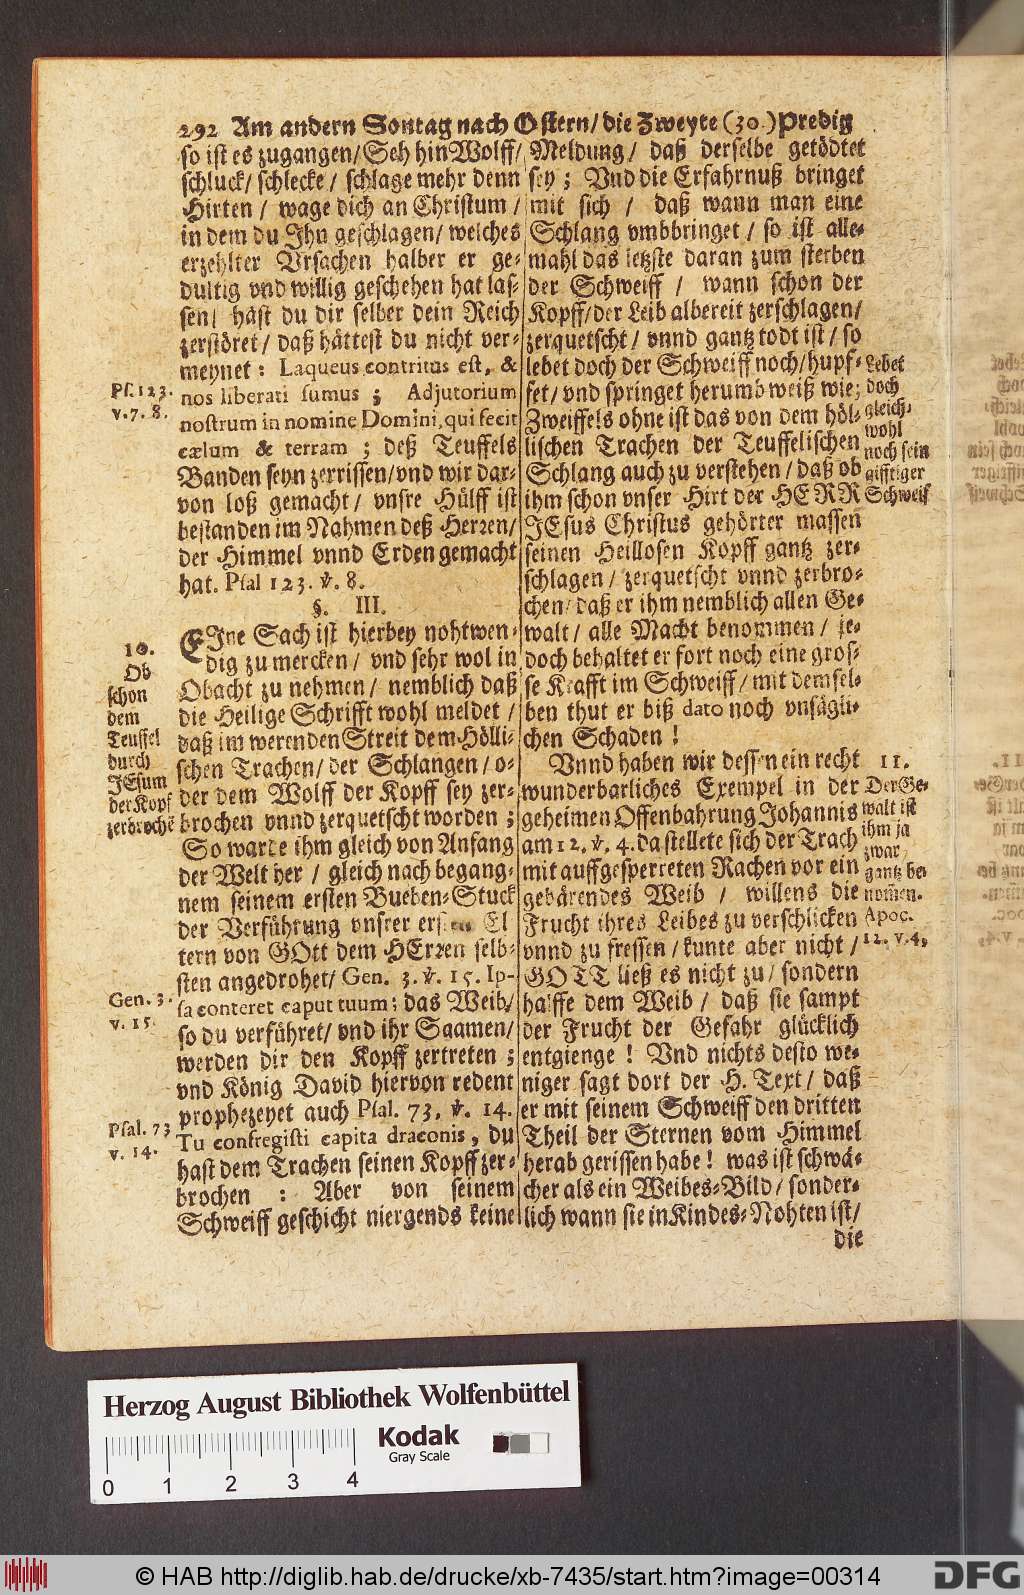 292 Am andern Sontag nach Ostern/ die Zweyte (30.) Predig
so ist es zugangen/ Seh hin Wolff/
schluck/ schlecke/ schlage mehr denn
Hirten/ wage dich an Christum/
in dem du Ihn geschlagen/ welches
erzehlter Vrsachen halber er ge-
dultig vnd willig geschehen hat las-
sen/ häst du dir selber dein Reich
zerstöret/ daß hättest du nicht ver-
meynet: Laqueus contritus est, &
nos liberati sumus; Adjutorium
nostrum in nomine Domini, qui fecit
cælum & terram; deß Teuffels
Banden seyn zerrissen/ vnd wir dar-
von loß gemacht/ vnsre Hülff ist
bestanden im Nahmen deß Herren/
der Himmel vnnd Erden gemacht
hat. Psal 123. ℣. 8.
Ps. 123.
v. 7. 8.
§. III.
EJne Sach ist hierbey nohtwen-
dig zu mercken/ vnd sehr wol in
Obacht zu nehmen/ nemblich daß
die Heilige Schrifft wohl meldet/
daß im werenden Streit dem Hölli-
schen Trachen/ der Schlangen/ o-
der dem Wolff der Kopff sey zer-
brochen vnnd zerquetscht worden;
So warde ihm gleich von Anfang
der Welt her/ gleich nach begang-
nem seinem ersten Bueben-Stuck
der Verführung vnsrer ersten El
tern von GOtt dem HErren selb-
sten angedrohet/ Gen. 3. ℣. 15. Ip-
sa conteret caput tuum; das Weib/
so du verführet/ vnd ihr Saamen/
werden dir den Kopff zertreten;
vnd König David hiervon redent
prophezeyet auch Psal. 73. ℣. 14.
Tu confregisti capita draconis, du
hast dem Trachen seinen Kopff zer-
brochen: Aber von seinem
Schweiff geschicht niergends keine
10.
Ob
schon
dem
Teuffel
durch
JEsum
der Kopf
zerbrochẽ
Gen. 3.
v. 15.
Psal. 73
v. 14.
Meldung/ daß derselbe getödtet
sey; Vnd die Erfahrnuß bringet
mit sich/ daß wann man eine
Schlang vmbbringet/ so ist alle-
mahl das letzste daran zum sterben
der Schweiff/ wann schon der
Kopff/ der Leib albereit zerschlagen/
zerquetscht/ vnnd gantz todt ist/ so
lebet doch der Schweiff noch/ hupf-
fet/ vnd springet herumb weiß wie;
Zweiffels ohne ist das von dem höl-
lischen Trachen der Teuffelischen
Schlang auch zu verstehen/ daß ob
ihm schon vnser Hirt der HERR
JEsus Christus gehörter massen
seinen Heillosen Kopff gantz zer-
schlagen/ zerquetscht vnnd zerbro-
chen/ daß er ihm nemblich allen Ge-
walt/ alle Macht benommen/ je-
doch behaltet er fort noch eine gros-
se Krafft im Schweiff/ mit demsel-
ben thut er biß dato noch vnsägli-
chen Schaden!
Lebet
doch
gleich-
wohl
noch sein
gifftiger
Schweif
Vnnd haben wir dessen ein recht
wunderbarliches Exempel in der
geheimen Offenbahrung Johannis
am 12. ℣. 4. da stellete sich der Trach
mit auffgesperreten Rachen vor ein
gebärendes Weib/ willens die
Frucht ihres Leibes zu verschlicken
vnnd zu fressen/ kunte aber nicht/
GOTT ließ es nicht zu/ sondern
halffe dem Weib/ daß sie sampt
der Frucht der Gefahr glücklich
entgienge! Vnd nichts desto we-
niger sagt dort der H. Text/ daß
er mit seinem Schweiff den dritten
Theil der Sternen vom Himmel
herab gerissen habe! was ist schwä-
cher als ein Weibes-Bild/ sonder-
lich wann sie in Kindes-Nohten ist/
die
11.
Der Ge-
walt ist
ihm ja
zwar
gantz be
nom̃en.
Apoc.
12. v. 4,
Herzog August Bibliothek Wolfenbüttel
Kodak
Gray Scale
0 1 2 3 4
© HAB http://diglib.hab.de/drucke/xb-7435/start.htm?image=00314
DFG